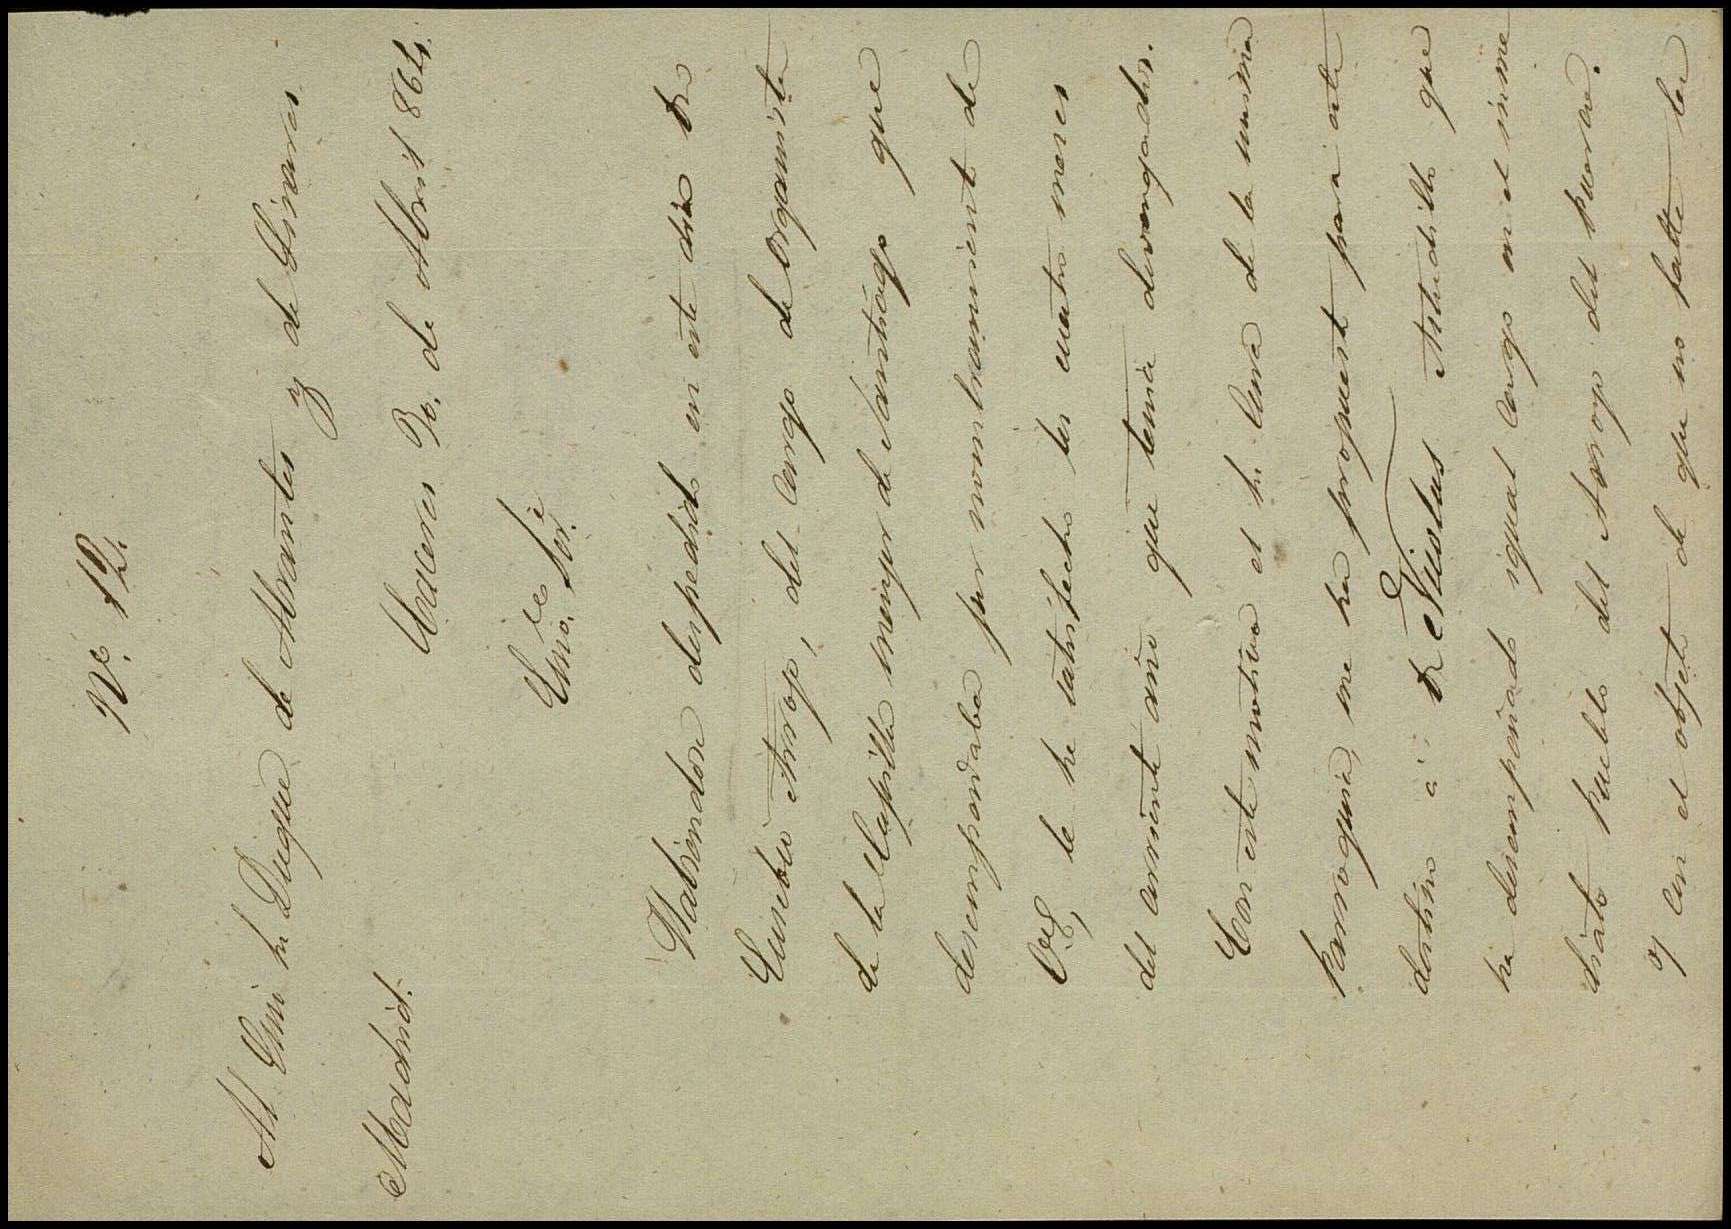 N.º 12.
Al Emo Sr Duque de Abrantes y de Linares.
Madrid.
Cáceres 30. de Abril 1864.
Emo. Sor.
Habiendose despedido en este dia Dn
Eusebio Arroyo, del Cargo de Organista
de la Capilla mayor de Santiago que
desempeñaba por nombramiento de
VE, le he satisfecho los cuatro meses
del corriente año que tenia devengados.
Con este motivo el Sr. Cura de la misma
parroquia, me ha propuesto para este
destino á Dn Nicolas Astudillo que
ha desempeñado igual cargo en el inme
diato pueblo del Arroyo del puerco.
y con el objeto de que no falte la